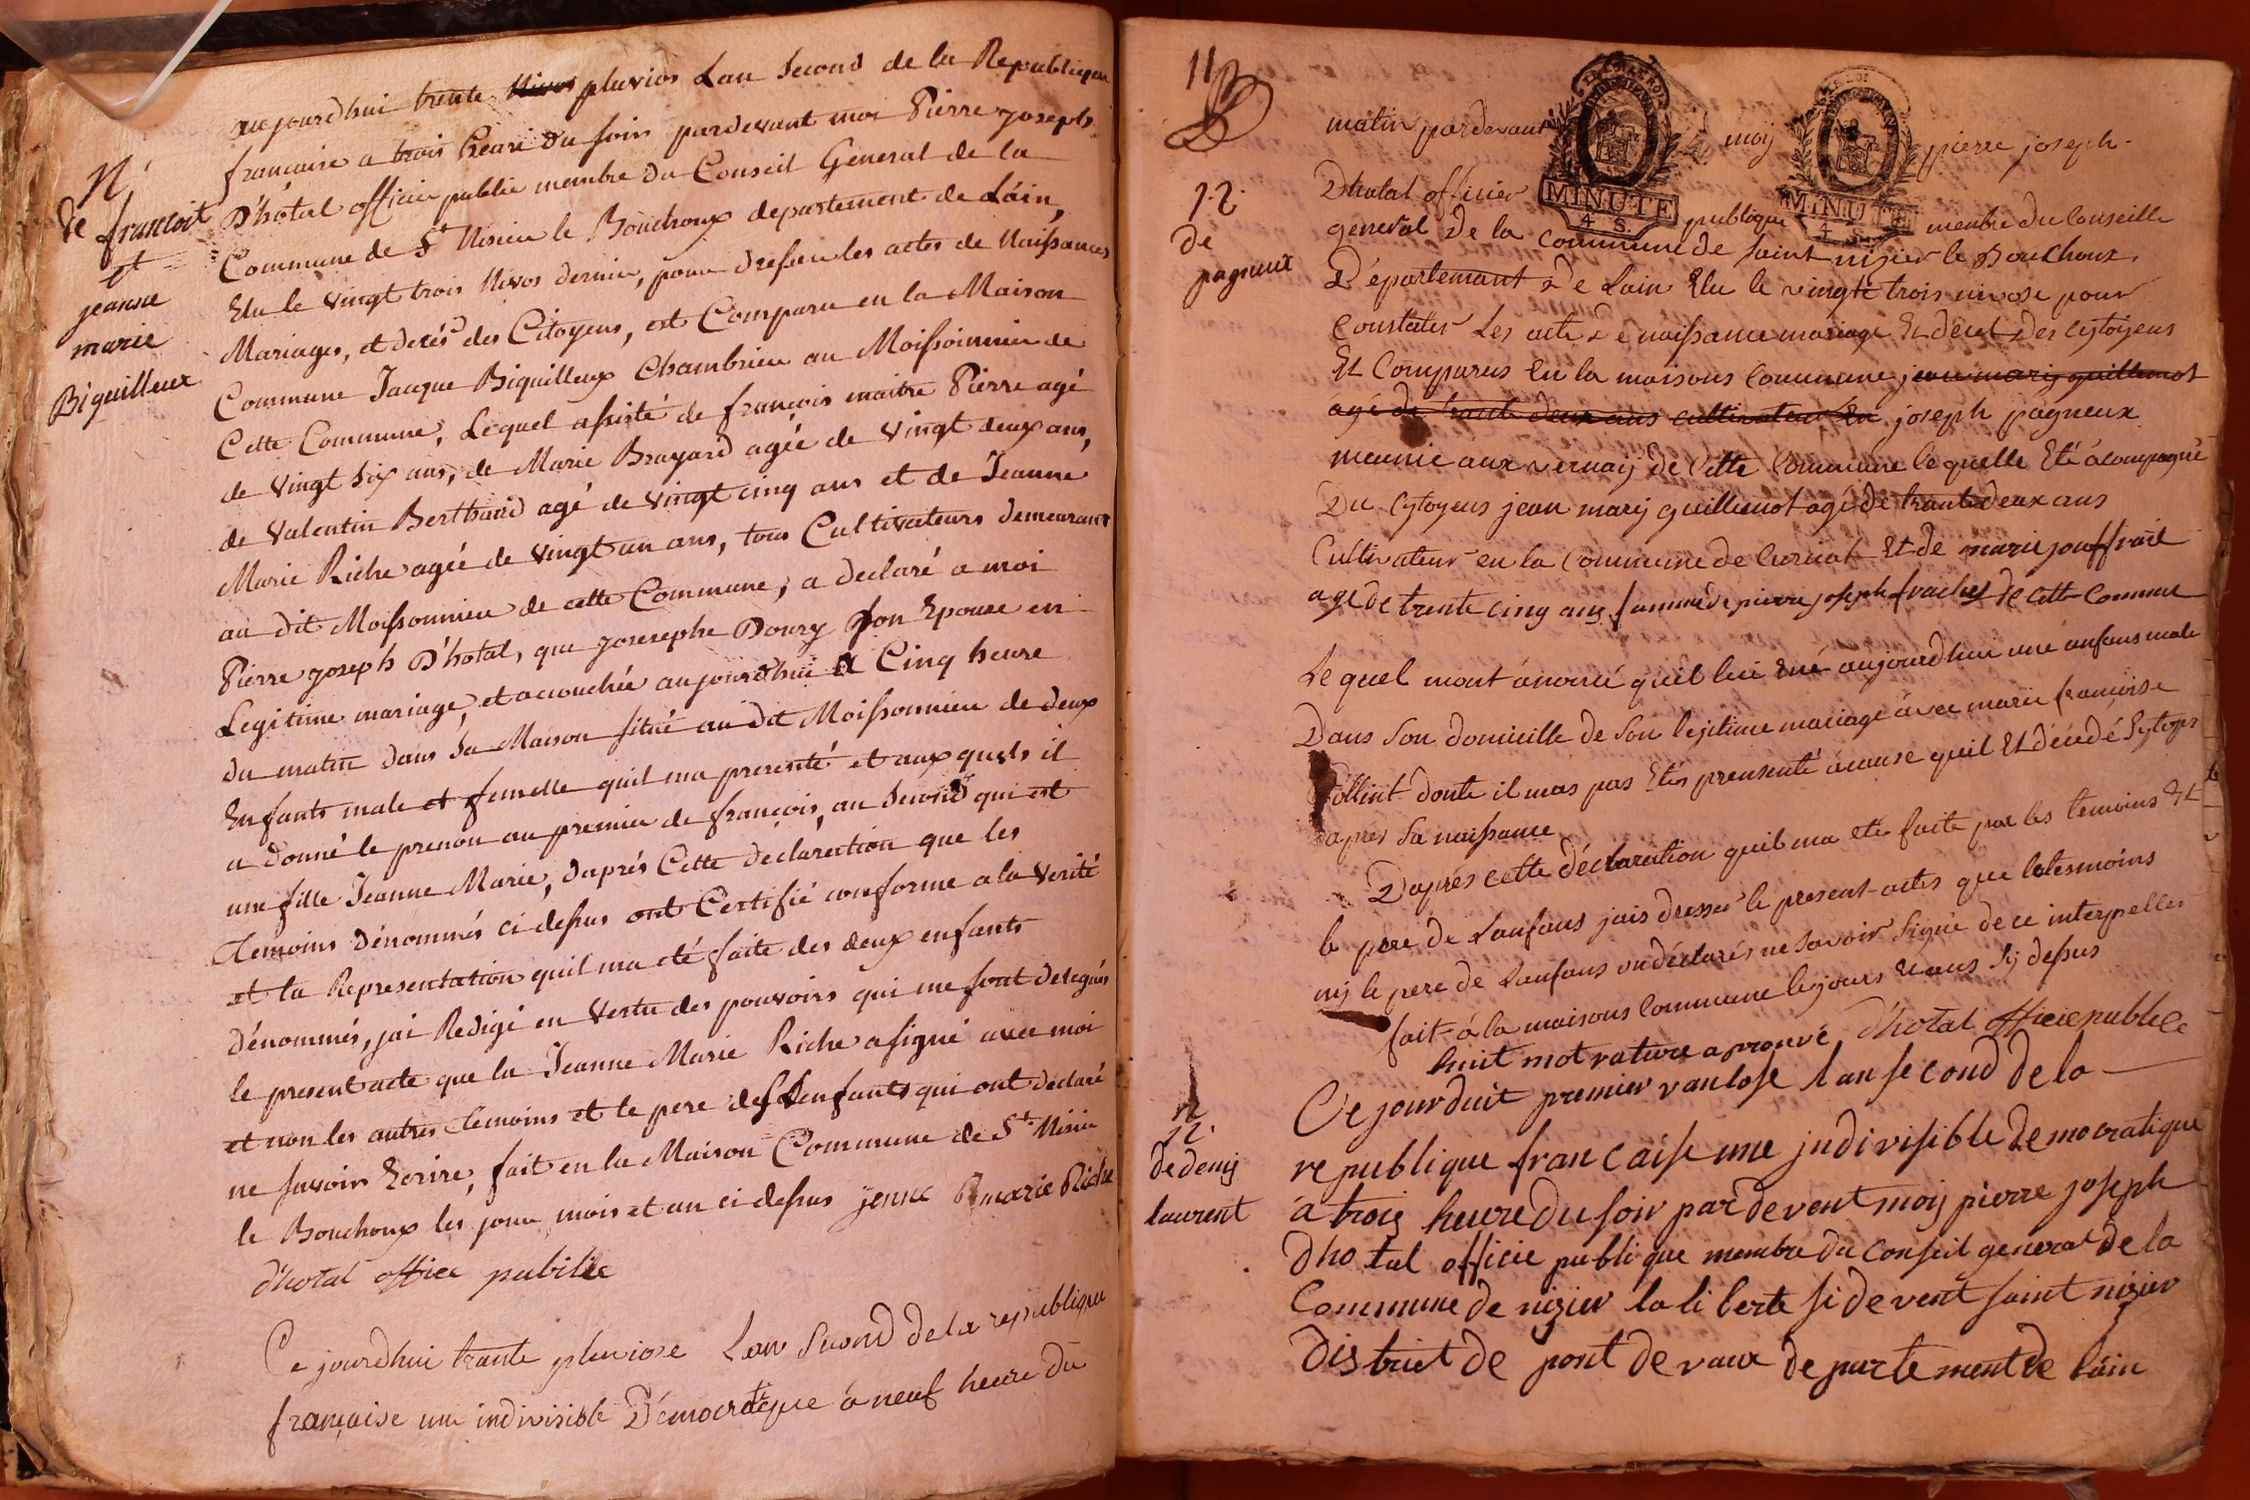 N
de francoit
et
jeanne
marie
Biguilleux
aujourdhui trente pluvios Lan Second de la Republique
francaise a trois heure du soir pardevant moi Pierre joseph
D'hôtal officier public membre du Conseil General de la
Commune de St Nisier le Bouchoux departement de Láin,
Elu le vingt trois Nivos dernier, pour dresser les actes de Naissances
Mariages, et decés des Citoyens, est Comparu en la Maison
Commune Jacque Biguilleux Chambrier au Moissonnier de
Cette Commune, Lequel assisté de françois maitre Pierre agé
de vingt six ans, de Marie Brayard agée de vingt deux ans,
de Valentin Berthaud agé de vingt cinq ans et de Jeanne
Marie Riche agée de vingt un ans, tous Cultivateurs demeurant
au dit Moissonnier de cette Commune, a declaré a moi
Pierre joseph D'hotal, que josesephe Doury son Epouse en
Legitime mariage, et accouchée aujourdhui a Cinq heure
du matin dans sa Maison situé au dit Moissonnier de deux
Enfants male et femelle quil ma presenté et aux quels il
a donné le prenon au premier de françois, au second qui est
une fille Jeanne Marie, daprés Cette declaration que les
Temoins dénommés ci dessus ont Certifié conforme a la verité
et la Representation quil ma eté faite des deux enfants
dénommés, jai Redigé en vertu des pouvoirs qui me sont delegués
le present acte que la Jeanne Marie Riche a signé avec moi
et non les autres Temoins et le pere des enfants qui ont declaré
ne savoir Ecrire, fait en la Maison Commune de St Nisier
le Bouchoux les jour, mois et an ci dessus jenne marie Riche
d'hotal officie publice
Ce jourdhui trante pluviose Lan Second de la republique
française une indivisible Démocratique a neuf heure du
11
12
de
pagneux
matin pardevant moij pierre joseph
Dhotal officier publique membre du Conseille
MINUTE
4 S.
MINUTE
4 S.
general de la commune de saint nizier le Bouchoux
Département de Lain Elu le vingte trois nivose pour
Constater Les acte de naissance mariage et decet des cytoyens
Et Comparus en la maisons commune jean marij guillemot
agé de trante deux ans cultivateur joseph pagneux
meunie aux vernaij de Cette Commune le quelle Eté acompagné
Du Cytoyens jean marij guillemot agé de trante deux ans
Cultivateur en la Commune de Curciat Et de marie jouffrail
agé de trente cinq ans famme de pierre joseph de cette commune
Le quel mont énoncé quil lui Ené aujourdhui une enfans male
Dans Son domicille de Son legitime mariage avec marie françoise
donte il mas pas Etés prensenté acause quil Et décédé
dapres Sa naissance
Daprés cette déclaration quil ma eté faite par les temoins Et
le pere de Lanfans jais dressée le present actes que les tesmoins
nij le pere de Lanfans on déclarés ne savoir signé de ce interpelles
fait a la maisons commune le jours Et ans Sij dessus
huit mot rature aprouvé D'hotal officie publice
n
de denij
laurent
Ce jourduit premier vanlose lan second de la
republique francaise une jndivisible democratique
á trois heure du soir par devent moij pierre joseph
dhotal officie publique membre du conseil general de la
Commune de nizier la liberte si devent saint nizier
district de pont de vaux departement de láin